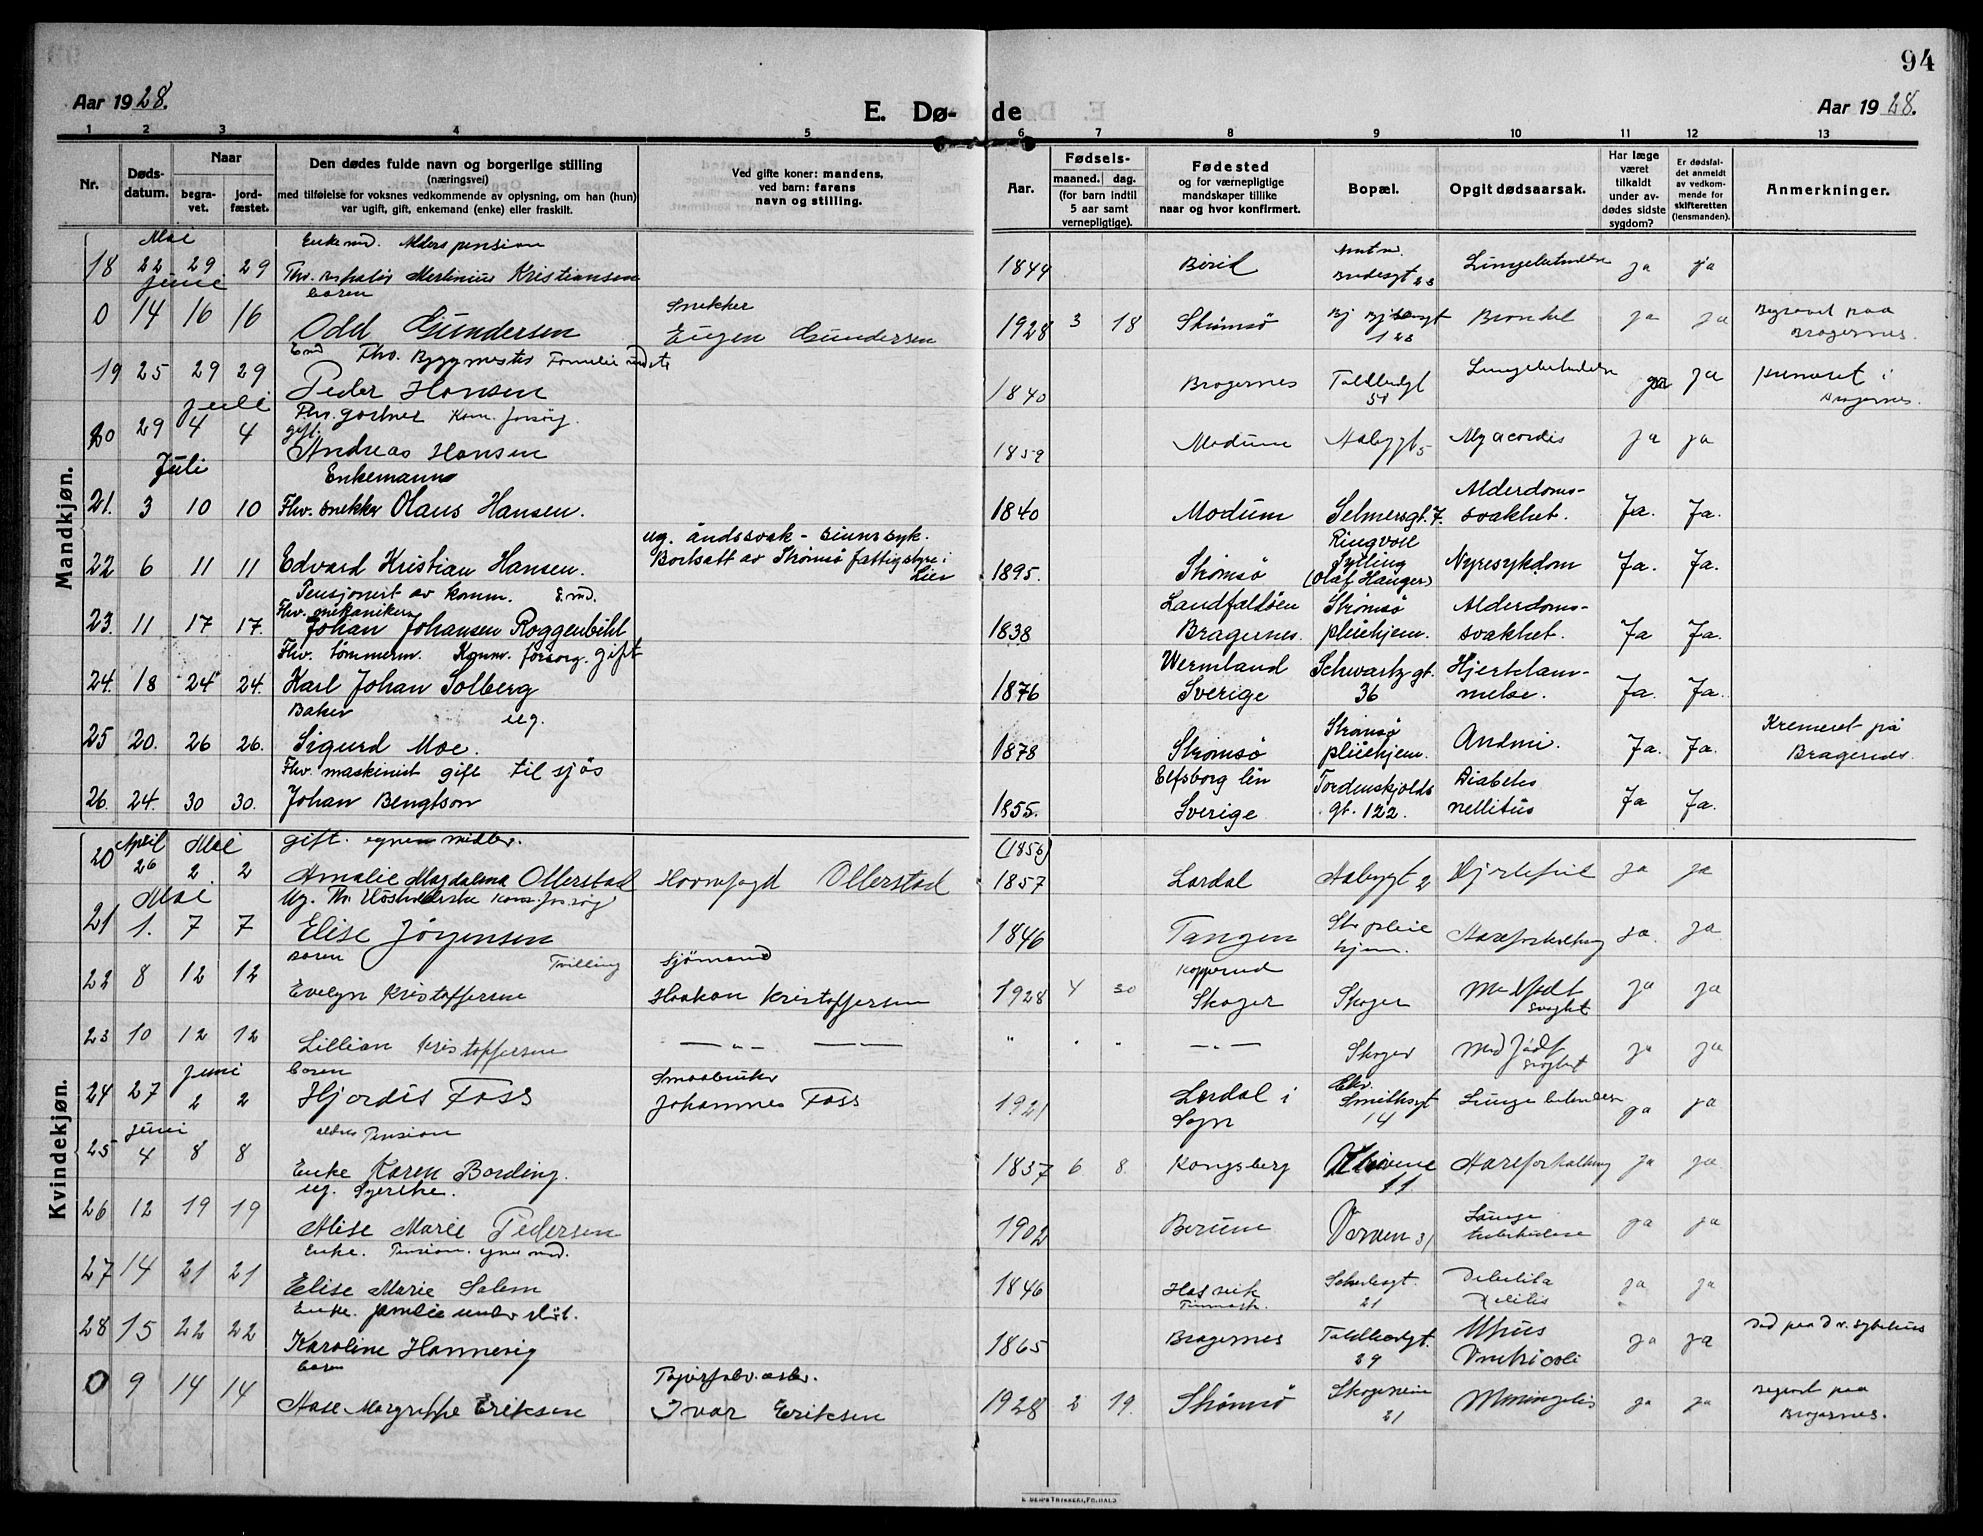 94
Aar 1928.
E. Dø- de
Aar 1928.
1 2 3 4 5 6 7 8 9 10 11 12 13
Nr.
Døds-
datum.
Naar
begra-
vet.
jord-
fæstet.
Den dødes fulde navn og borgerlige stilling
(næringsvei)
med tilføielse for voksnes vedkommende av oplysning, om han (hun)
var ugift, gift, enkemand (enke) eller fraskilt.
Ved gifte koner: mandens,
ved barn: farens
navn og stilling.
Aar.
Fødsels-
maaned. dag.
(for barn indtil
5 aar samt
vernepligtige).
Fødested
og for værnepligtige
mandskaper tillike
naar og hvor konfirmert.
Bopæl.
Opgit dødsaarsak.
Har læge
været
tilkaldt
under av-
dødes sidste
sygdom?
Er dødsfal-
det anmeldt
av vedkom-
mende for
skifteretten
(lensmanden).
Anmerkninger.
Mandkjøn.
Mai Enkemd. Alderspension
18 22 29 29 Mertinius Kristiansen 1844 Biri ja ja
Juni
0 14 16 16 Odd Gundersen Snekker Eugen Gundersen 1928 3 18 Strømsø ja ja Begravet paa Bragernes.
19 25 29 29 Peder Hansen 1840 Bragernes Toldbodgt 51 ja ja Bragernes.
Juli Fhv. gartner Kom. forsørg.
20 29 4 4 gift. Andreas Hansen 1859 Modum Aabygt 5 ja ja
Juli Enkemann
21. 3 10 10 Fhv. snekker Olaus Hansen. 1840 Modum Selmersgt. 7. Alderdoms-
svakhet. Ja. Ja.
22 6 11 11 Edvard Kristian Hansen. ug. åndssvak - sinnssyk.
Bortsatt av Strømsø fattigstyre i
Lier 1895. Strømsø Ringvoll
Sylling
(Olaf Hanger) Nyresykdom Ja. Ja.
Pensjonert av komm. E.md.
Fhv. mekaniker
23. 11 17 17. Johan Johansen Roggenbihl 1838 Landfalløen
Bragernes. Strømsø
pleiehjem. Alderdoms-
svakhet. Ja Ja.
Fhv. tømmerm. Komm. forsørg. gift
24. 18 24 24. Karl Johan Solberg 1876 Wermland
Sverige Schwartz gt.
36 Hjertelam-
melse. Ja. Ja.
Baker ug.
25 20. 26 26. Sigurd Moe. 1878 Strømsø Strømsø
pleiehjem. Ja. Ja. Kremert på
Bragernes.
Fhv. maskinist gift til sjøs
26. 24. 30 30. Johan Bengtson 1855. Elfsborg län
Sverige Tordenskjolds
gt. 122. Diabetes
mellitus Ja Ja.
Kvindekjøn.
April Mai gift. egne midler.
20 26 2 2 Amalie Magdalena Ollerstad Ollerstad (1856)
1857 Lardal Aabygt 2 Hjertefeil ja ja
Mai
21 1. 7 7 Elise Jørgensen 1846 Tangen Aareforkalkning ja. ja
Tvilling Sjømand
22 8 12 12 Evelyn Kristoffersen Haakon Kristoffersen 1928 4 30 Kopperud
Skoger Skoger Medfødt
svaghet ja ja
23 10 12 12 Lillian Kristoffersen — „ — — — " " " — „ — Skoger Medfødt
svaghet ja ja
Juni Smaabruker
24 27 2 2 Hjordis Foss Johannes Foss 1921 Lærdal i
Sogn Smithsgt
14 ja ja
Juni Pension
25 4 8 8 Enke Karen Bording. 1837 6 8 Kongsberg 11 Aareforkalkning ja ja
ug. Syerske.
26 12 19 19 Alise Marie Pedersen 1902 Berum Verven 31 Lunge
tuberkulose ja ja
Enke. Pension.
27 14 21 21 Elise Marie Salem 1846 Hasvik
Finmark. 21 ja ja
Enke.
28 15 22 22 Karoline Hannevig 1865 Bragernes Toldbodgt.
29 Ulcus
Ventricoli ja ja
0 9 14 14 Aase Margrethe Eriksen Ivar Eriksen 1928 2 19. Strømsø 21 Meningitis ja ja Begravet paa
Bragernes.